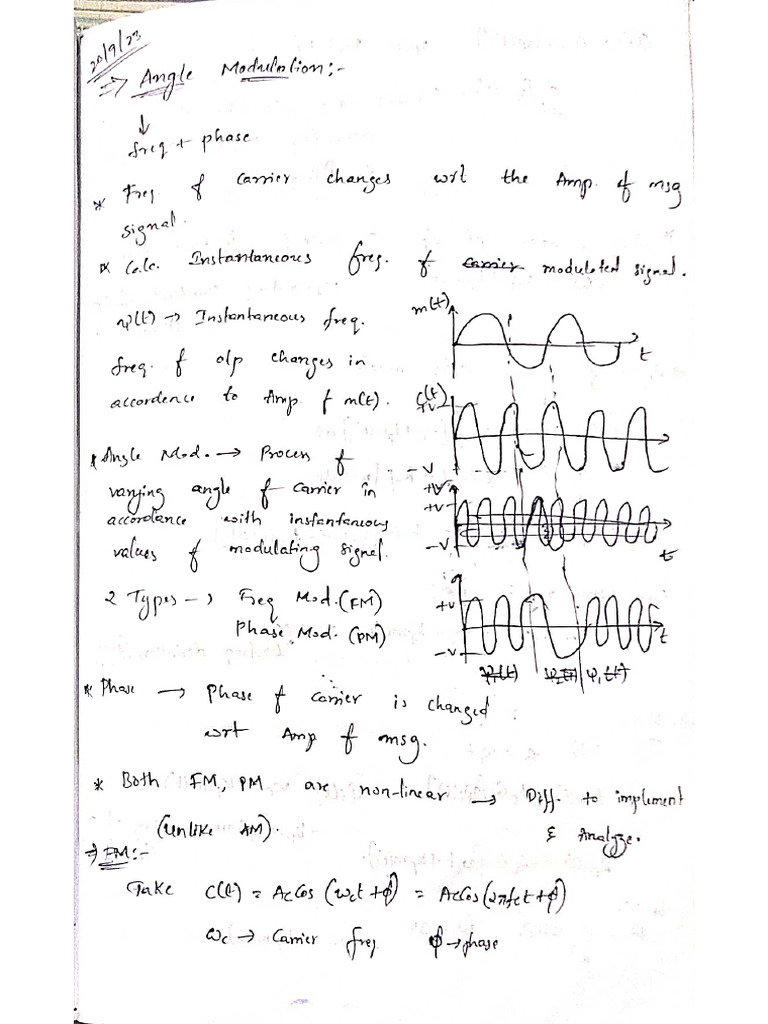 20/9/23
⇒ Angle Modulation:-
↓
freq + phase
* Freq of carrier changes wrt the Amp. of msg
signal.
* Calc. Instantaneous freq. of carrier modulated signal.
ψ(t) → Instantaneous freq.
freq. of o/p changes in
accordence to Amp of m(t).
* Angle Mod. → Process of
varying angle of carrier in
accordance with instantaneous
values of modulating signal.
2 Types → Freq Mod. (FM)
Phase Mod. (PM)
m(t)
t
C(t)
+V
-V
+V
+V
-V
t
+V
-V
t
ψ1(t) ψ2(t) ψ1(t)
* Phase → Phase of carrier is changed
wrt Amp of msg.
* Both FM, PM are non-linear → Diff. to implement
(unlike AM). & Analyze.
⇒ FM:-
Take C(t) = Ac Cos (ωct + ϕ) = Ac Cos (2πfct + ϕ)
ωc → Carrier freq ϕ → phase